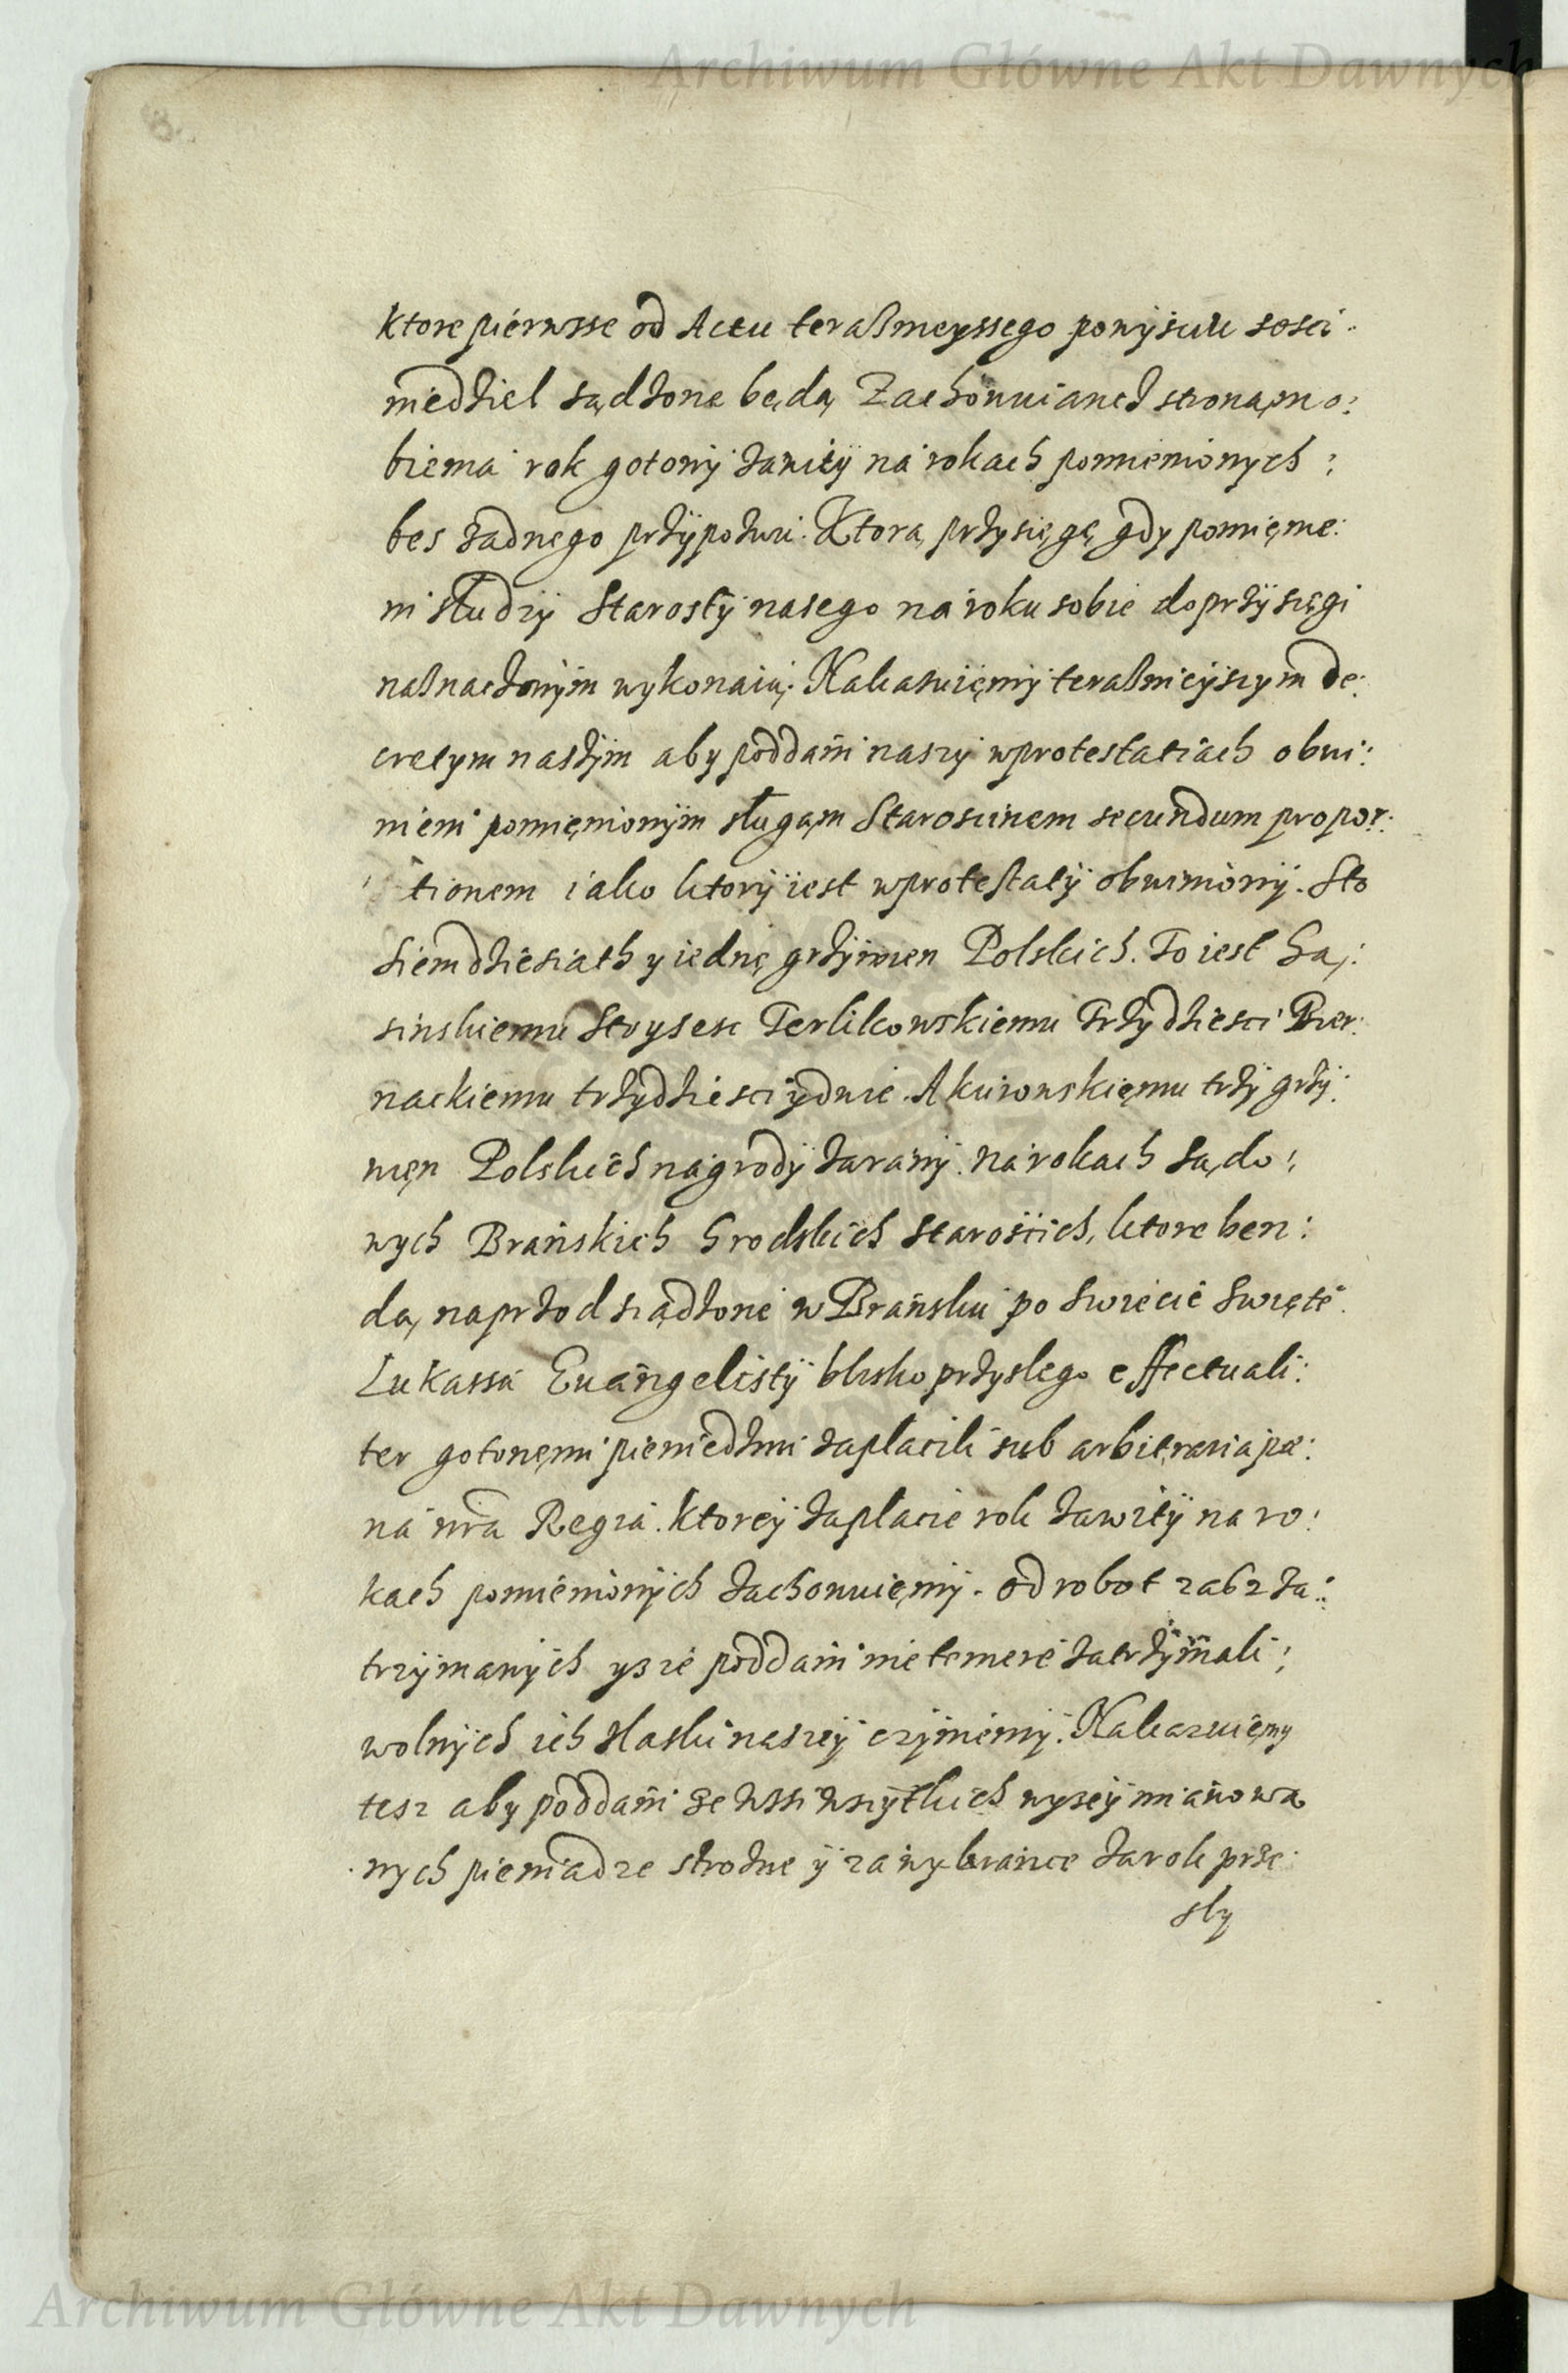 Archiwum Główne Akt Dawnych
8.
ktore pierwsse od Actu teraßnieyssego powyściu sesci
niedziel sądzone będą Zachowuiącz stronąm o:
biema rok gotowy zawity na rokach pomienionych:
bes żadnego przypozwu. Ktorą przysięgę gdy pomięnie:
ni słudzy Starosty nasego na roku sobie do przysięgi
naßnaczonym wykonaią. Nakasuięmy teraßnieyszym de:
cretym naszym aby poddani naszy w protestatiach obwi:
nieni pomięnionym sługąm Staroscinem secundum propor:
tionem iako ktory iest w protestaty obwiniony. Sto
siemdziesiath y iednę grzywien Polskich. To iest Ga:
sinskiemu Stoyseść Terlikowskiemu Trzydziesci Bier:
nackiemu trzydziesci y dwie. A kuiowskięmu trzy grzy:
więn Polskich nagrody zarany na rokach sądo:
wych Brańskich Grodskich Starościch, ktore ben:
dą naprzod sządzone w Brańsku po Swiecie Swięte
Lukassa Euangelisty blisko przyslego effectuali:
ter gotowęmi pieniedzmi zaplacili sub arbitraria pæ:
na nra Regia. Ktorey zaplacie rok zawity na ro:
kach pomienionych zachowuięmy. Od robot zaś za:
trzymanych ysz ie poddani nie temere zatrzymali:
wolnych ich zlaski naszey czyniemy. Nakazuięmy
tesz aby poddani ze wssi wszytkich wyzey mianowa
nych pieniadze strozne y za wybrańce za rok prze
sly
Archiwum Główne Akt Dawnych